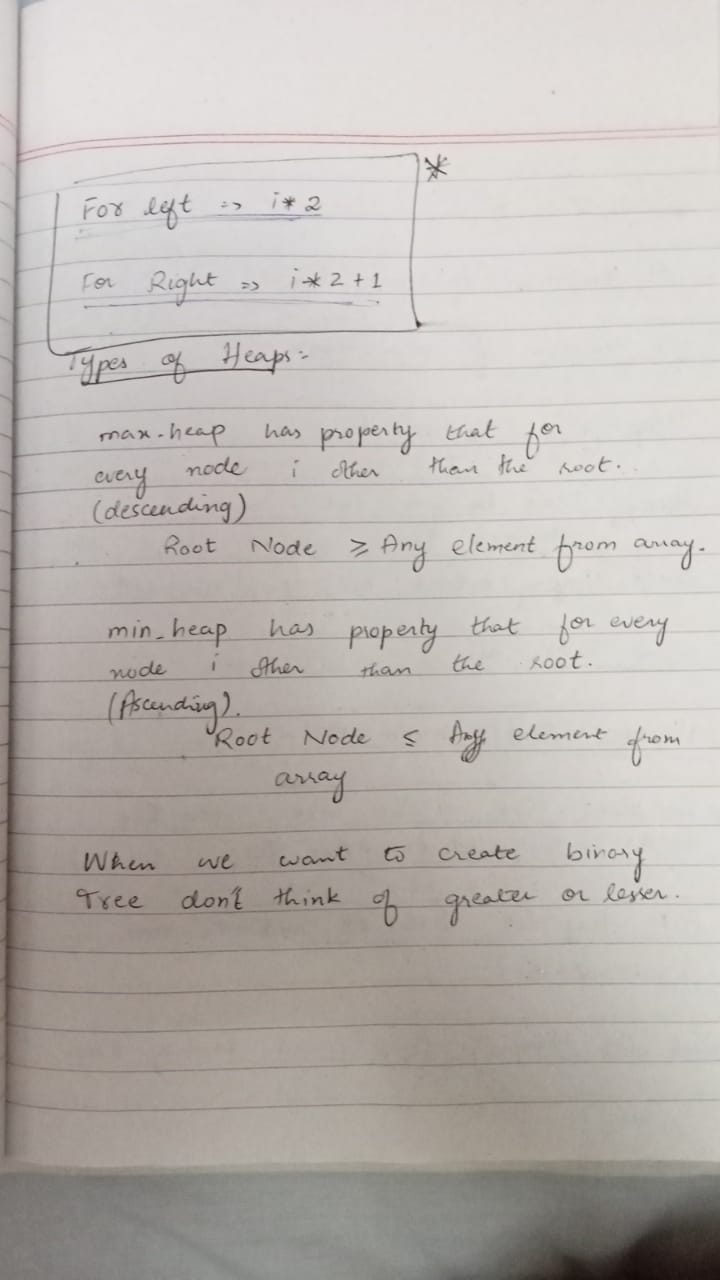 *
For left => i * 2
For Right => i * 2 + 1
Types of Heaps :-
max-heap has property that for
every node i other than the root.
(descending)
Root Node ≥ Any element from array.
min_heap has property that for every
node i other than the root.
(Ascending).
Root Node ≤ Any element from
array
When we want to create binary
Tree don't think of greater or lesser.